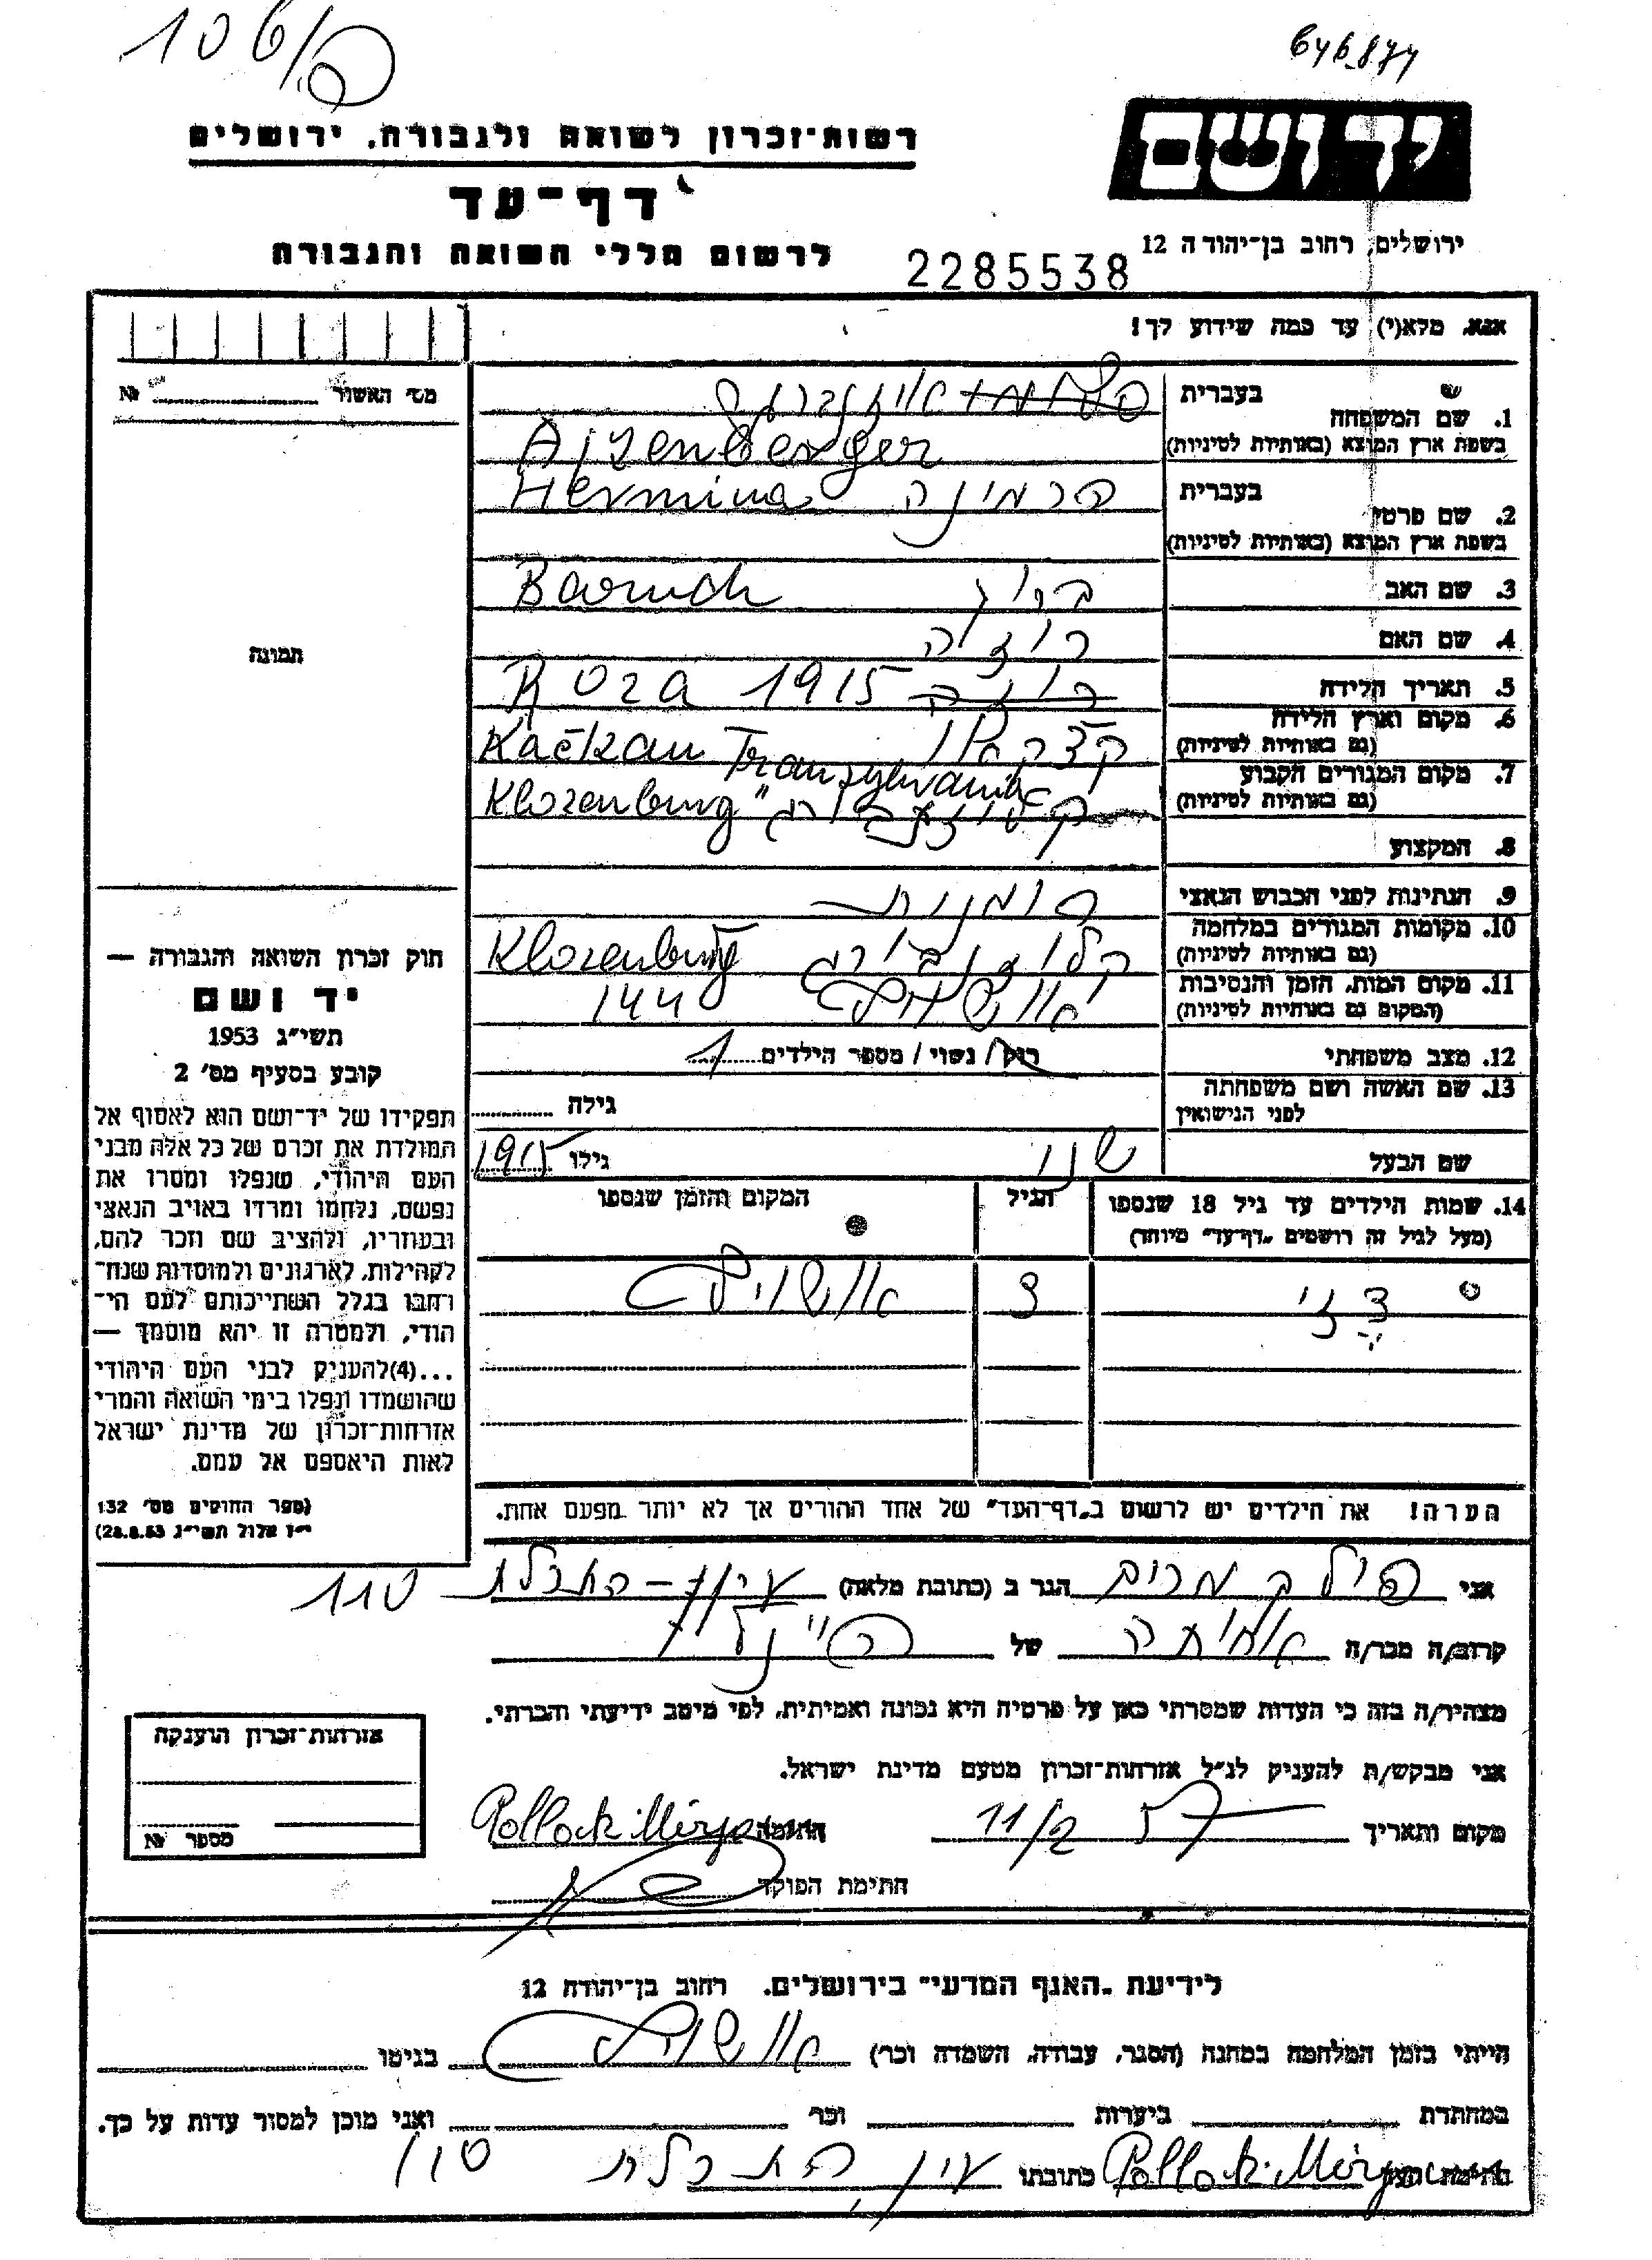 106/פ
646.874
רשות־זכרון לשואה ולגבורה, ירושלים
יד ושם
דף־עד
ירושלים, רחוב בן־יהודה 12
לרשום חללי השואה והגבורה
2285538
אנא, מלא(י) עד כמה שידוע לך!
מס׳ האשור № 
1. שם המשפחה
בעברית
בשפת ארץ המוצא (באותיות לטיניות)
Ajzenberger
2. שם פרטי
בעברית
הרמינה Hermina
בשפת ארץ המוצא (באותיות לטיניות)
3. שם האב ברוך Baruch
4. שם האם רוזה
5. תאריך הלידה רוזה 1915 Roza
6. מקום וארץ הלידה
(גם באותיות לטיניות)
Kačkan Transylvania
7. מקום המגורים הקבוע
(גם באותיות לטיניות)
Klozenburg "
8. המקצוע
9. הנתינות לפני הכבוש הנאצי רומנית
10. מקומות המגורים במלחמה
(גם באותיות לטיניות)
קלוזנבורג Klozenburg
11. מקום המות, הזמן והנסיבות
(המקום גם באותיות לטיניות)
אושויץ 144
12. מצב משפחתי רוק / נשוי / מספר הילדים 1
13. שם האשה ושם משפחתה
לפני הנישואין
גילה
שם הבעל גילו 1915
14. שמות הילדים עד גיל 18 שנספו
(מעל לגיל זה רושמים „דף־עד" מיוחד)
הגיל
המקום והזמן שנספו
3 אושויץ
הערה! את הילדים יש לרשום ב„דף־העד" של אחד ההורים אך לא יותר מפעם אחת.
תמונה
חוק זכרון השואה והגבורה —
יד ושם
תשי״ג 1953
קובע בסעיף מס׳ 2
תפקידו של יד־ושם הוא לאסוף אל
המולדת את זכרם של כל אלה מבני
העם היהודי, שנפלו ומסרו את
נפשם, נלחמו ומרדו באויב הנאצי
ובעוזריו, ולהציב שם וזכר להם,
לקהילות, לארגונים ולמוסדות שנח־
רבו בגלל השתייכותם לעם הי־
הודי, ולמטרה זו יהא מוסמך —
...(4)להעניק לבני העם היהודי
שהושמדו ונפלו בימי השואה והמרי
אזרחות־זכרון של מדינת ישראל
לאות היאספם אל עמם.
(ספר החוקים מס׳ 132
י״ז אלול תשי״ג 28.8.53)
אני פולק מרים הגר ב (כתובת מלאה) עין־התכלת 110
קרוב/ה מכר/ה אחותה של
מצהיר/ה בזה כי העדות שמסרתי כאן על פרטיה היא נכונה ואמיתית, לפי מיטב ידיעתי והכרתי.
אני מבקש/ת להעניק לנ״ל אזרחות־זכרון מטעם מדינת ישראל.
מקום ותאריך 11/2 57 חתימה Pollack Mirjam
חתימת הפוקד
אזרחות־זכרון הוענקה
מספר №
לידיעת „האגף המדעי" בירושלים, רחוב בן־יהודה 12
הייתי בזמן המלחמה במחנה (הסגר, עבודה, השמדה וכר׳) אושויץ בגיטו
במחתרת ביערות וכר׳ ואני מוכן למסור עדות על כך.
חתימת העד Pollack Mirjam כתובתו עין התכלת 110